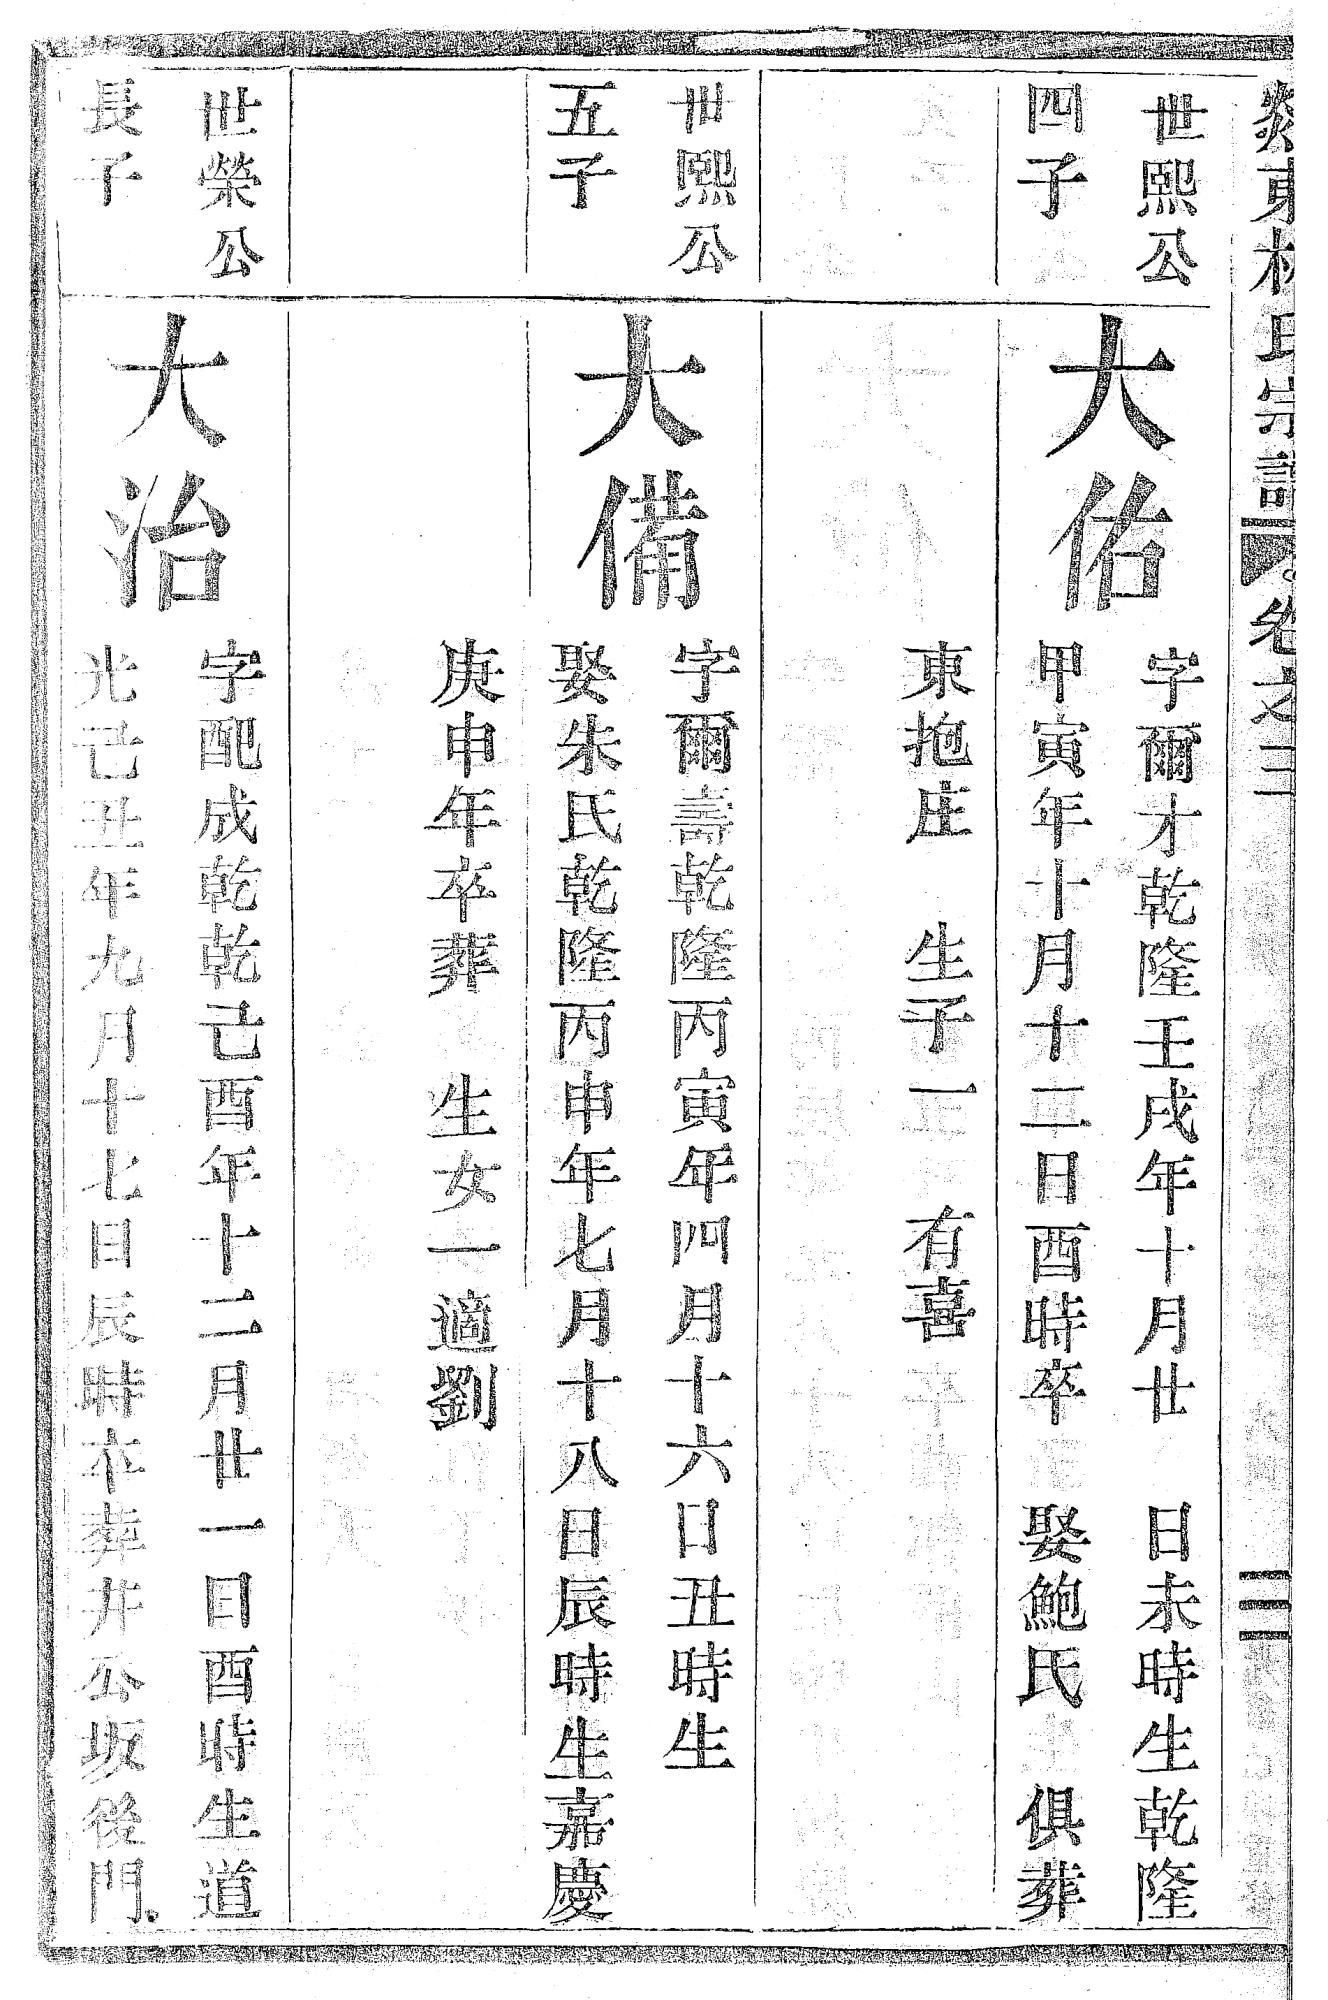 東 氏宗譜 卷之二 三
世熙公
四子
大佑
字爾才乾隆壬戌年十月廿 日未時生乾隆
甲寅年十月十二日酉時卒 娶鮑氏 俱葬
東抱庄 生子一 有喜
世熙公
五子
大備
字爾壽乾隆丙寅年四月十六日丑時生
娶朱氏乾隆丙申年七月十八日辰時生嘉慶
庚申年卒葬 生女一適劉
世榮公
長子
大治
字配成乾乾己酉年十二月廿一日酉時生道
光己丑年九月十七日辰時卒葬井公坂後門。